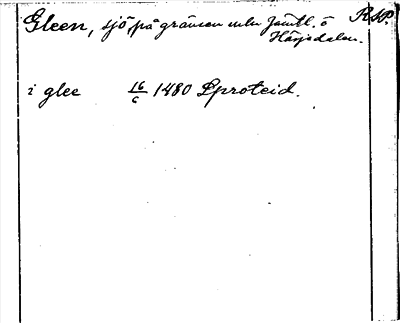 Gleen, sjö, på gränsen mln Jämtl. o
Härjedalen.
i glee 16/6 1480 Pproteid.